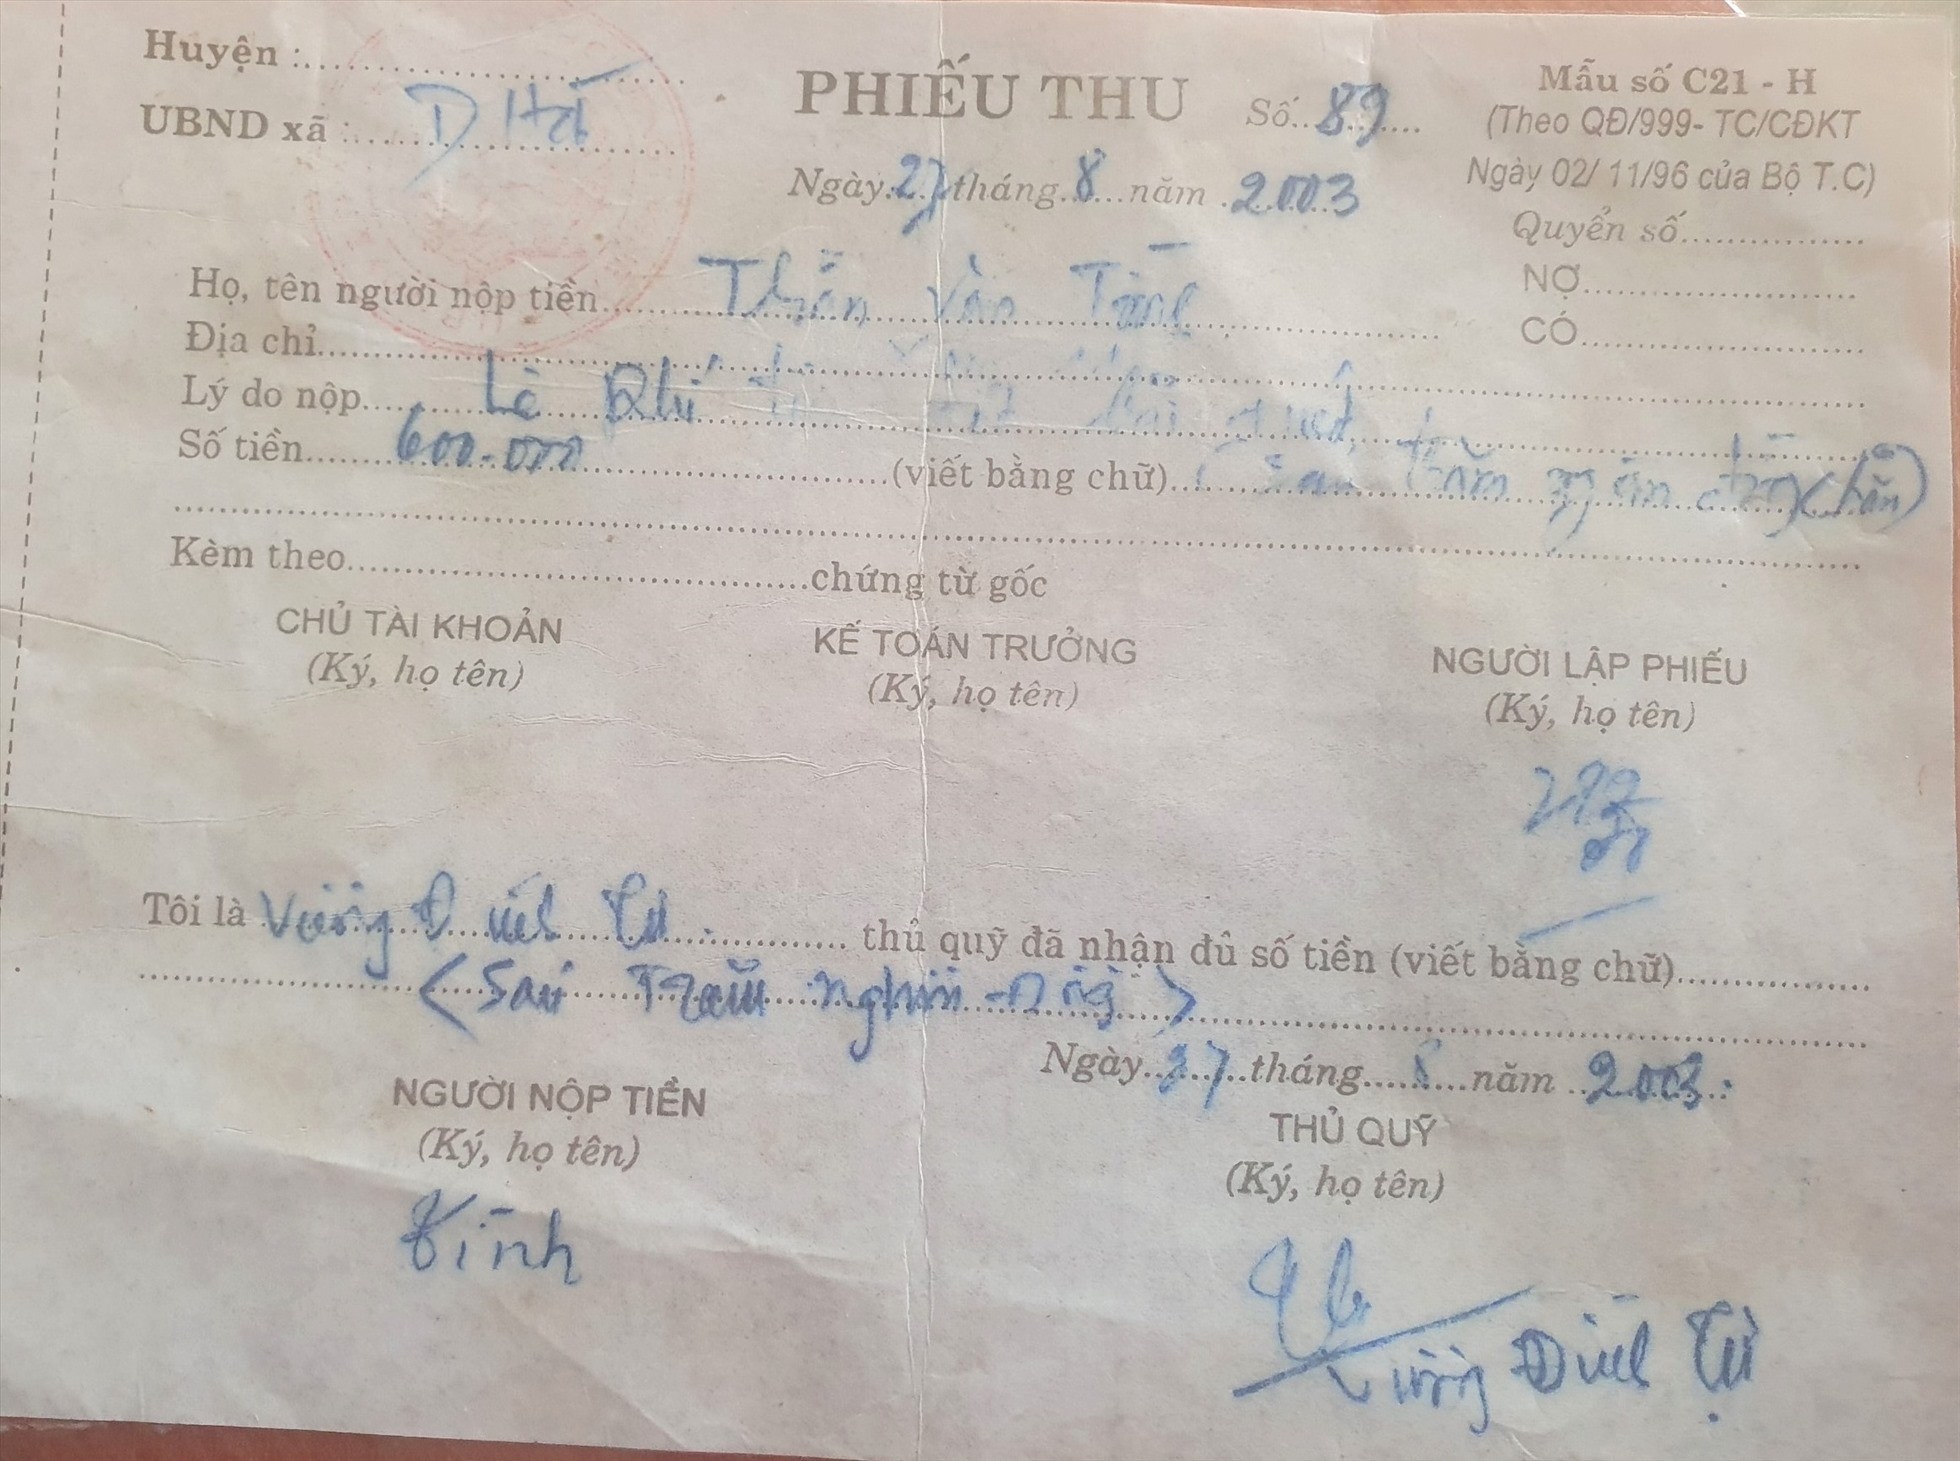 Huyện :
UBND xã :
PHIẾU THU Số 89
Ngày 27 tháng 8 năm 2003
Mẫu số C21 - H
(Theo QĐ/999- TC/CĐKT
Ngày 02/ 11/96 của Bộ T.C)
Quyển số
NỢ
CÓ
Họ, tên người nộp tiền Văn
Địa chỉ
Lý do nộp Lệ phí
Số tiền 600.000 (viết bằng chữ) (Sáu trăm ngàn đồng chẵn)
Kèm theo chứng từ gốc
CHỦ TÀI KHOẢN
(Ký, họ tên)
KẾ TOÁN TRƯỞNG
(Ký, họ tên)
NGƯỜI LẬP PHIẾU
(Ký, họ tên)
Tôi là Vương Đình thủ quỹ đã nhận đủ số tiền (viết bằng chữ)
(Sáu Trăm nghìn đồng)
Ngày 27 tháng 8 năm 2003
NGƯỜI NỘP TIỀN
(Ký, họ tên)
THỦ QUỸ
(Ký, họ tên)
Vương Đình